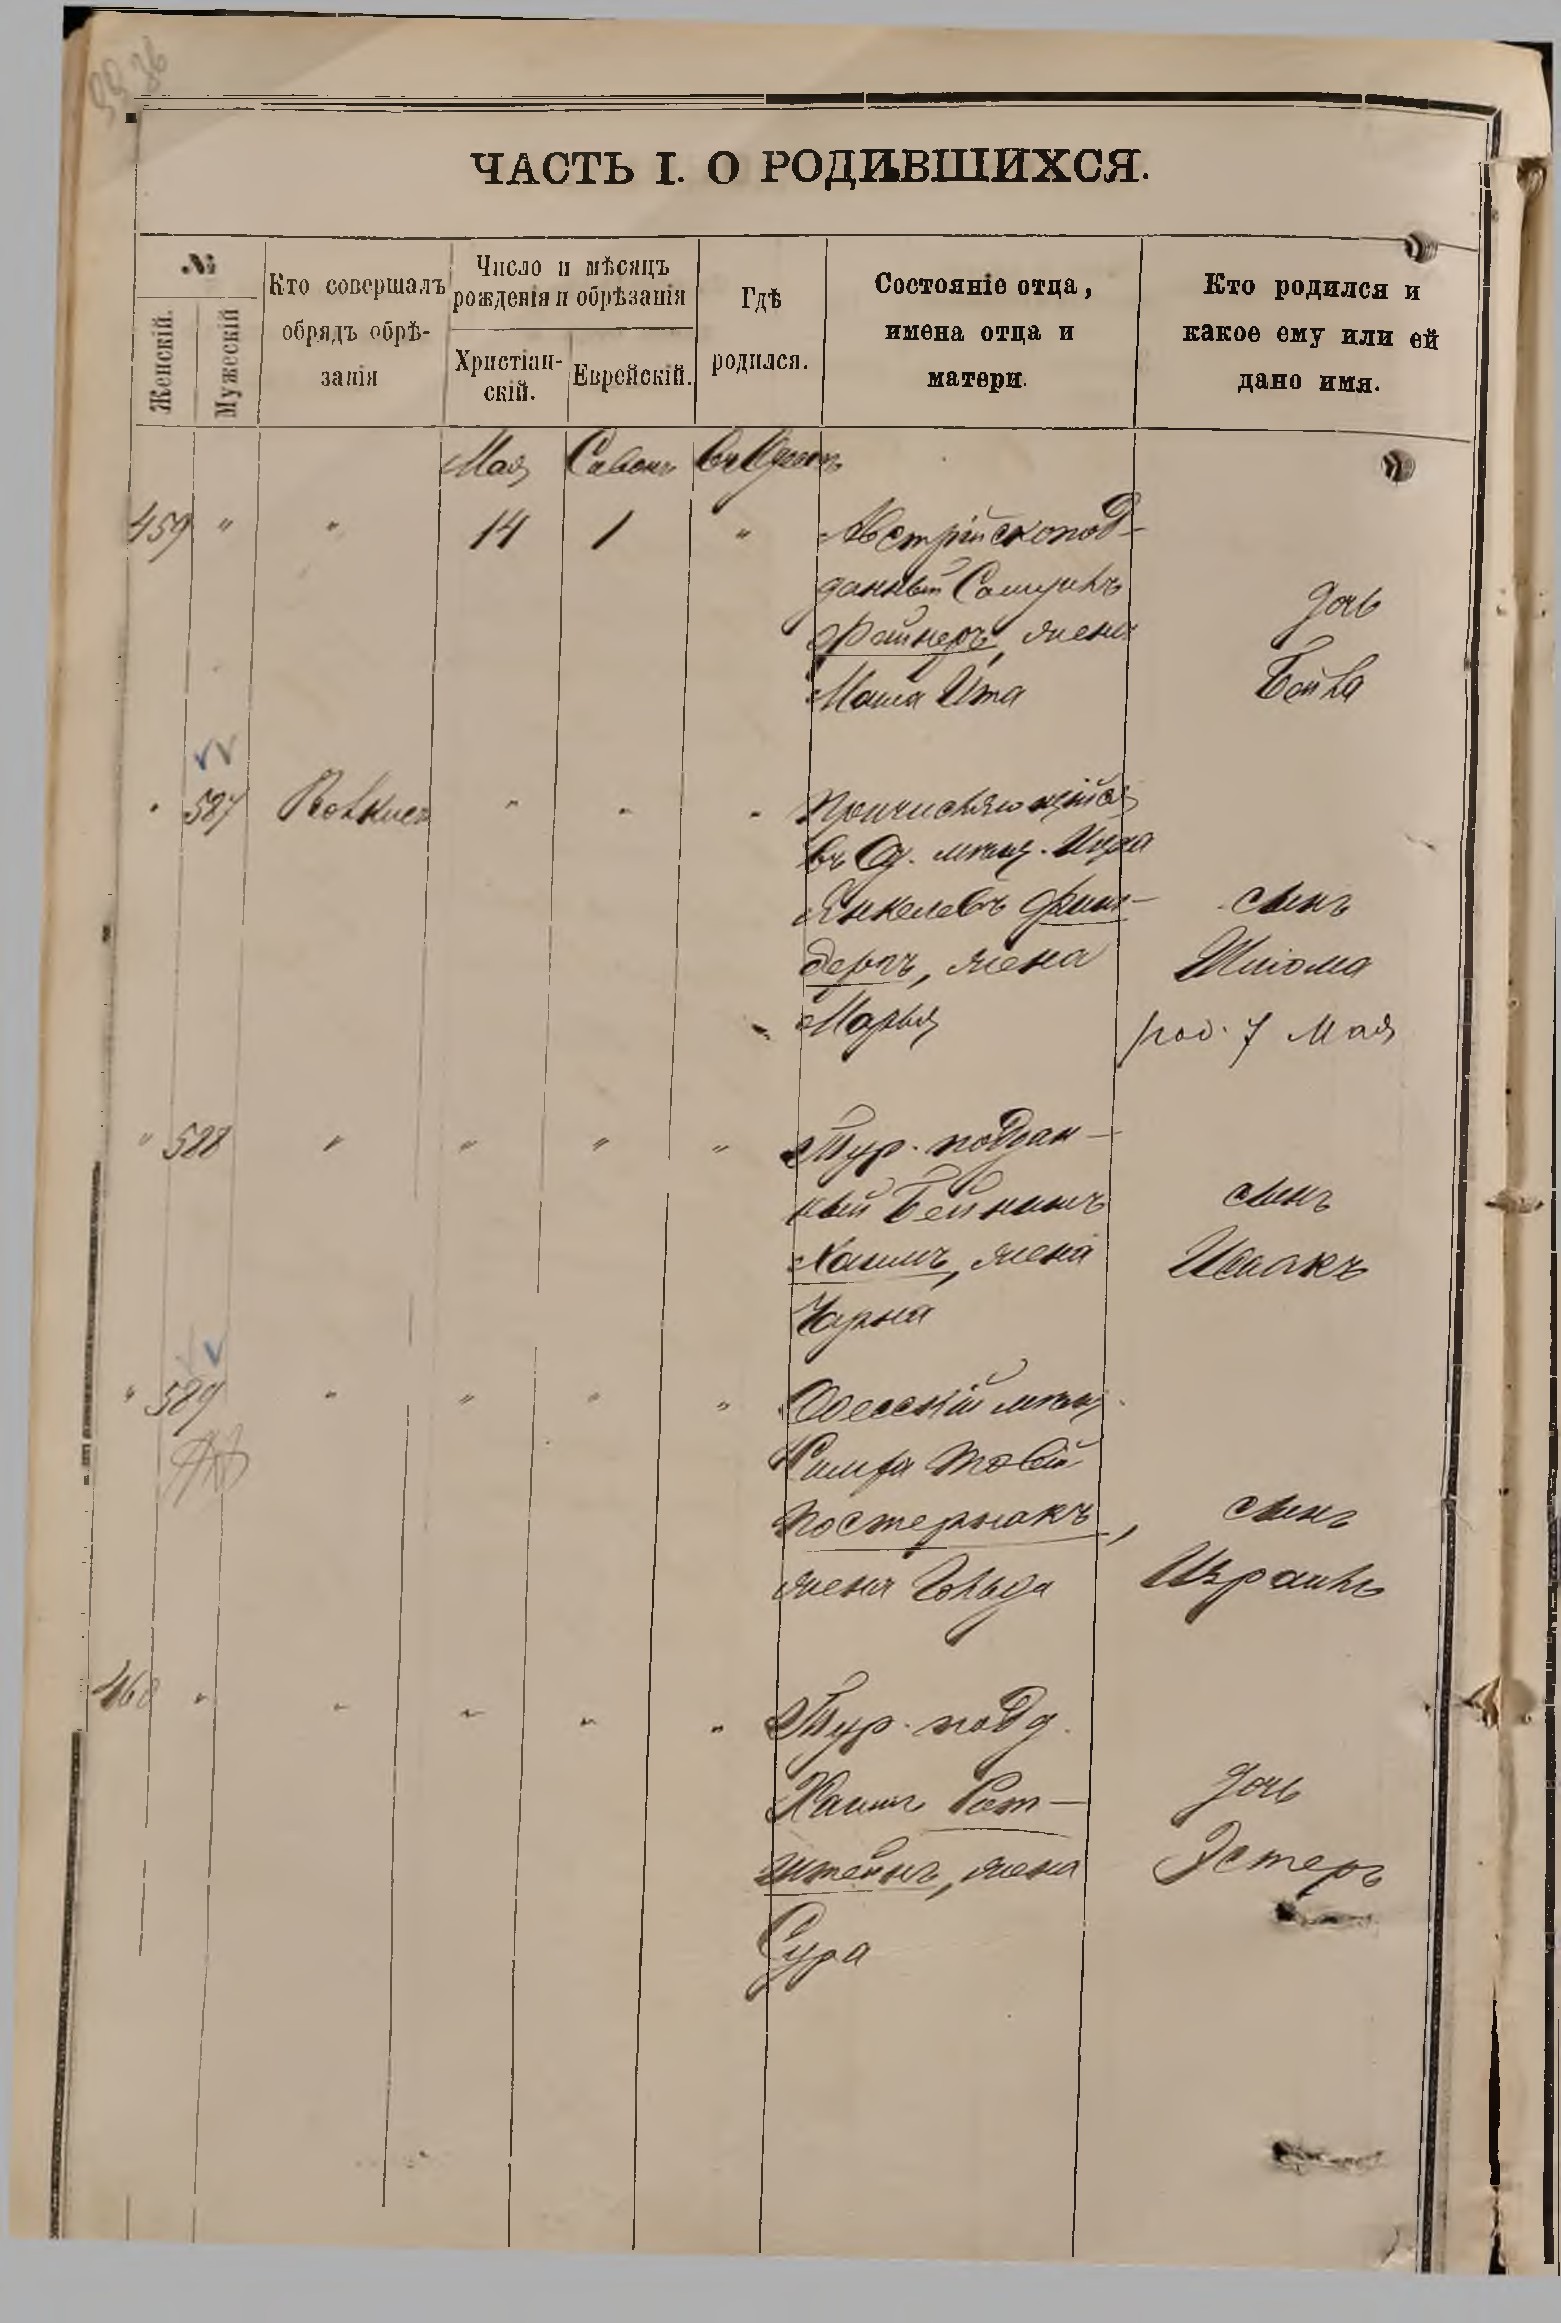 ЧАСТЬ I. О РОДИВШИХСЯ.
№
Женскій.
Мужескій
Кто совершалъ
обрядъ обрѣ-
занія
Число и мѣсяцъ
рожденія и обрѣзанія
Христіан-
скій.
Еврейскій.
Гдѣ
родился.
Состояніе отца,
имена отца и
матери.
Кто родился и
какое ему или ей
дано имя.
Мая Сивонъ въ Одессѣ
459 " " 14 1 " Австрійскопод-
данный
Файнеръ, жена
Маша Ита
дочь
Бейла
" 587 " " "
Причисляющійся
въ Од. мѣщ. Ицка
Янкелевъ Фин-
деръ, жена
Марья
сынъ
Шлома
род. 7 Мая
" 588 " " " " Тур. поддан-
ный Бейнишъ
Хаимъ, жена
Чарна
сынъ
Исаакъ
" 589 " " " " Одесскій мѣщ.
Постернакъ,
жена Гольда
сынъ
Израиль
460 " " " " " Тур. подд.
Хаимъ Рот-
штейнъ, жена
Сура
дочь
Эстеръ